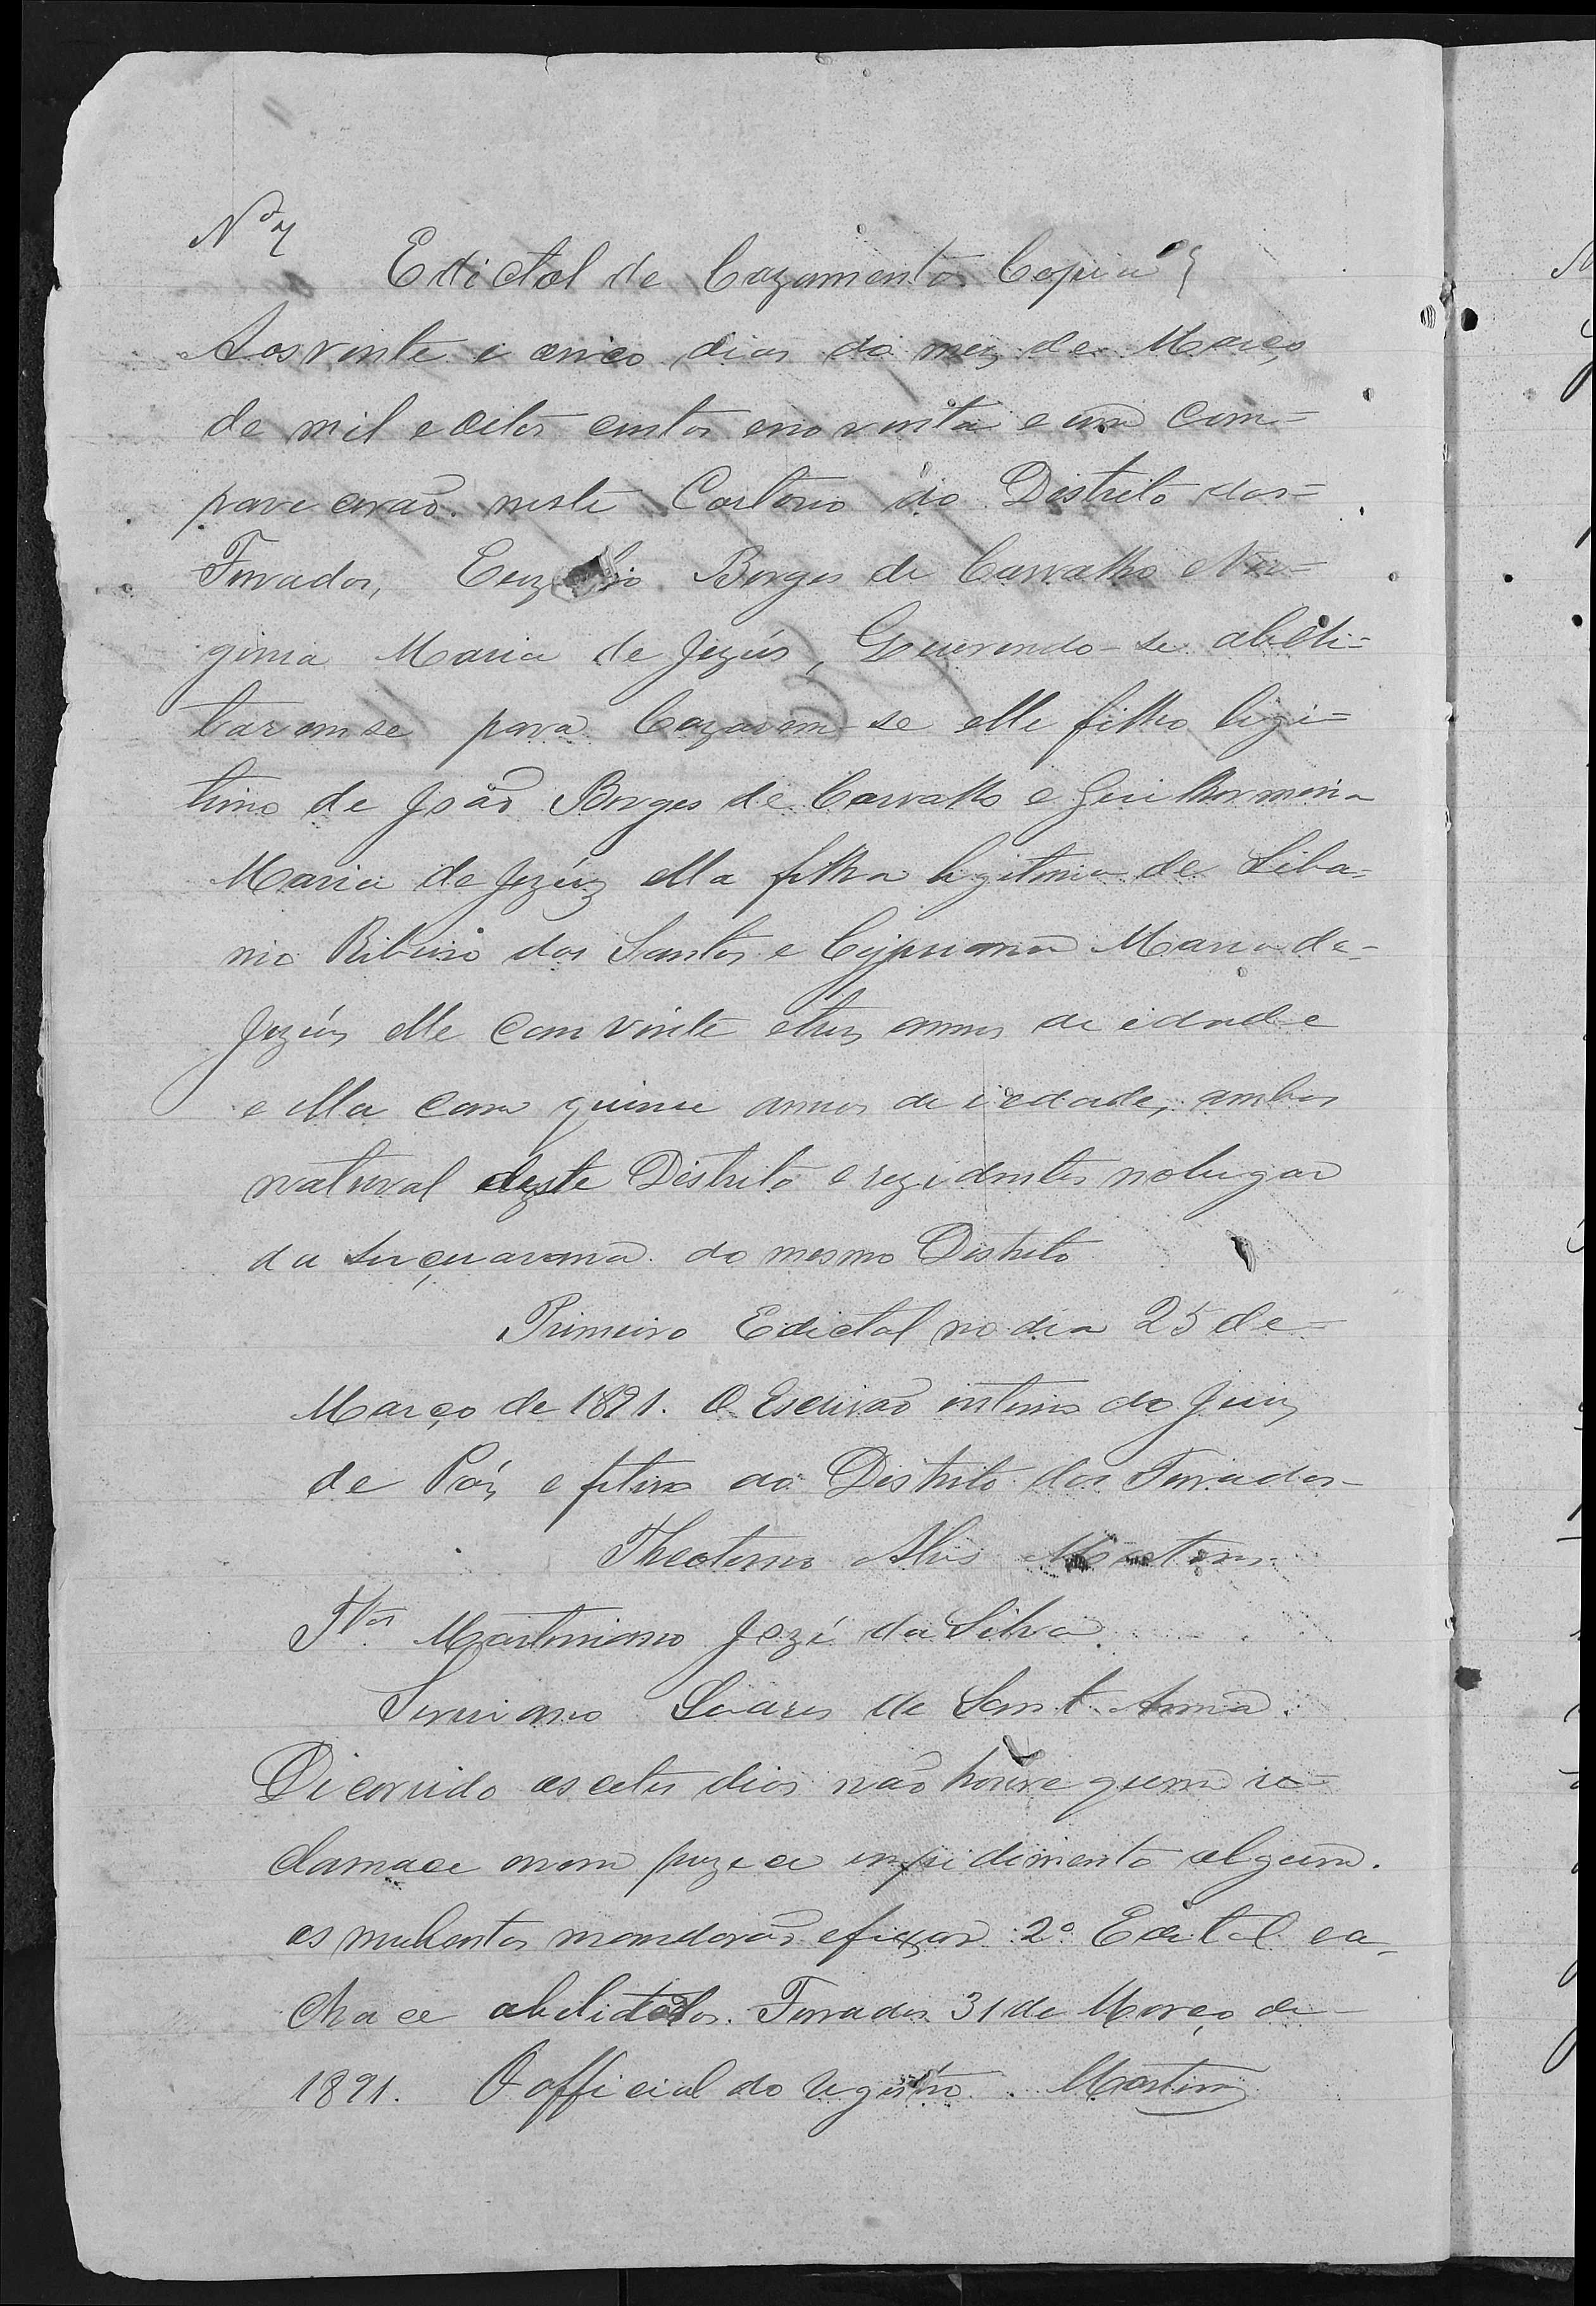 Nº 7
Edictal de Cazamento Copia
Aos vinte e cinco dias do mez de Março
de mil e oitos centos e noventa e um com=
parecerão neste Cartorio do Distrito dos=
Ferrados, Euzebio Borges de Carvalho e Vir=
ginia Maria de Jezús, Querendo-se abeli=
tarem se para Cazarem-se elle filho legi=
timo de João Borges de Carvalho e Guilhermina
Maria de Jezúz ella filha legitima de Liba=
nio Ribeiro dos Santos e Cypriana Maria de=
Jezús, elle com vinte e trez annos de edade
e ella com quinze annos de iedade, ambos
natural deste Distrito e rezidentes no lugar
da Suçuarana do mesmo Distrito
Primeiro Edictal no dia 25 de=
Março de 1891. O Escrivão interino do Juiz
de Páz e fetivo do Distrito dos Ferrados-
Theotonio Alves Martins
Tas Martiniano Jozé da Silva.
Severiano Soares de Sant Anna.
Dicorrido as oitos dias não houve quem re=
clamace nem puzece inpidimento algum.
os nubentes mandarão efiçar 2º Edital ea=
cha ce abelitados. Ferrados 31 de Março de
1891. O official do registro. Martins